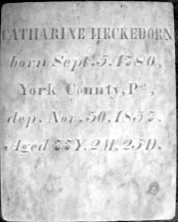 CATHARINE HECKEDORN
born Sept. 5. 1780,
York County, Pa,
dep. Nov. 30, 1857.
Aged 77Y. 2M. 25D.